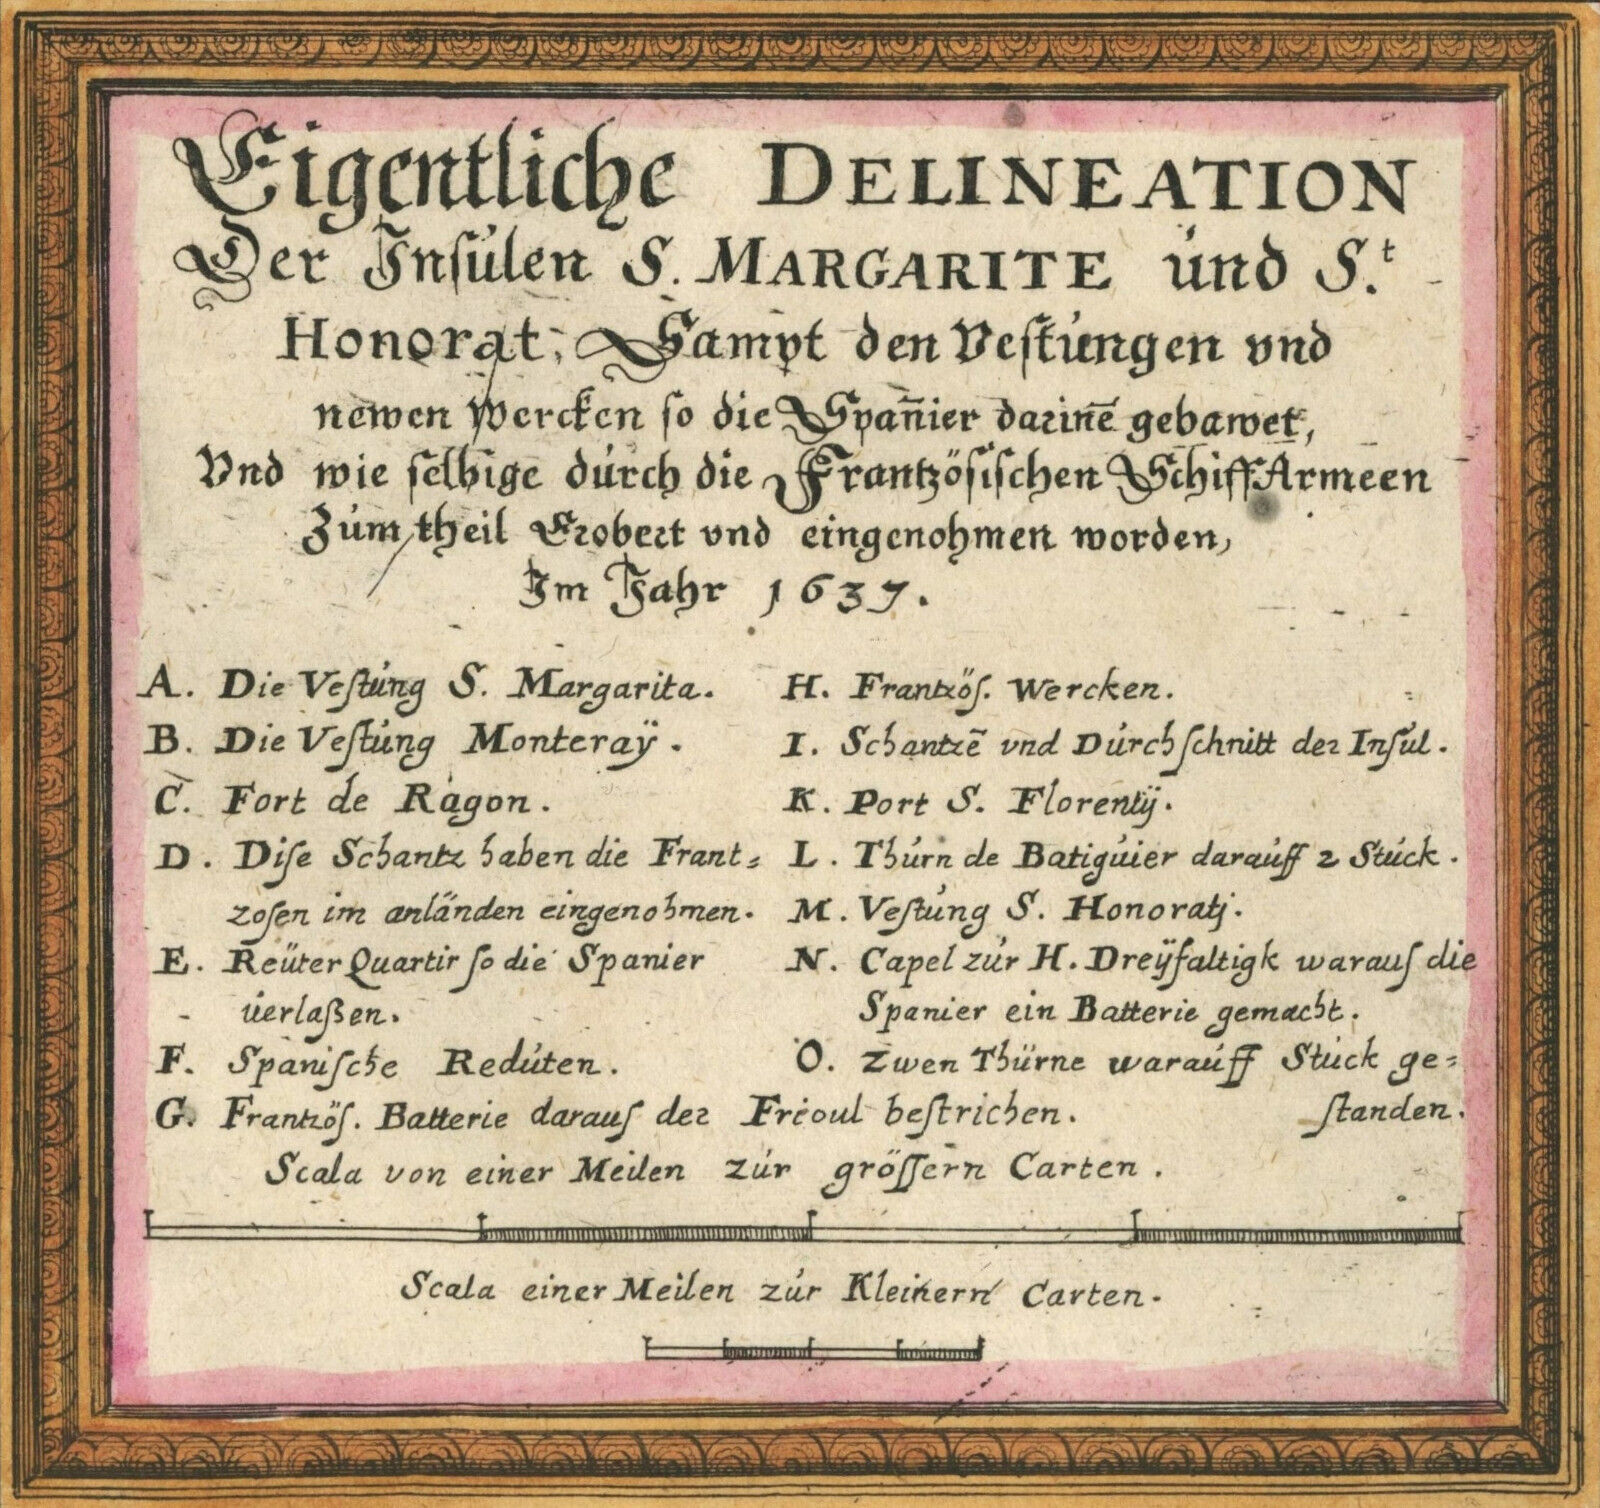 Eigentliche DELINEATION
Der Insúlen S. MARGARITE únd S.t
Honorat, Sampt den Vestúngen vnd
newen Wercken so die Span̄ier darinē gebawet,
Vnd wie selbige dúrch die Frantzösischen Schiff Armeen
Zúm theil Erobert vnd eingenohmen worden,
Im Jahr 1637.
A. Die Vestúng S. Margarita.
B. Die Vestúng Monteraÿ.
C. Fort de Ragon.
D. Dise Schantz haben die Frant=
zosen im anländen eingenohmen.
E. Reüter Quartir so die Spanier
úerlaßen.
F. Spanische Redúten.
G. Frantzös. Batterie daraus der Frioul bestrichen.
H. Frantzös. Wercken.
I. Schantzē vnd Dúrchschnitt der Insúl.
K. Port S. Florentÿ.
L. Thúrn de Batigúier daraúff 2 Stúck.
M. Vestúng S. Honoratj.
N. Capel zúr H. Dreÿfaltigk waraus die
Spanier ein Batterie gemacht.
O. Zwen Thürne waraúff Stúck ge=
standen.
Scala von einer Meilen zúr grössern Carten.
Scala einer Meilen zúr Kleinern Carten.